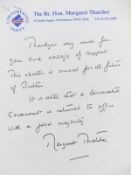 CONSERVATIVE PARTY
The Rt. Hon. Margaret Thatcher
Thank you very much for
your kind message of support.
This election is crucial for the future
of Britain.
It is vital that a Conservative
Government is returned to office
with a good majority.
Margaret Thatcher